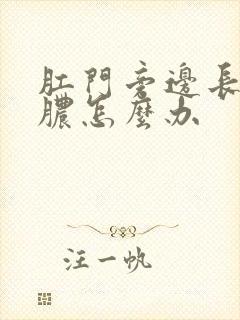 肛門旁邊長
膿怎麼办
汪一帆